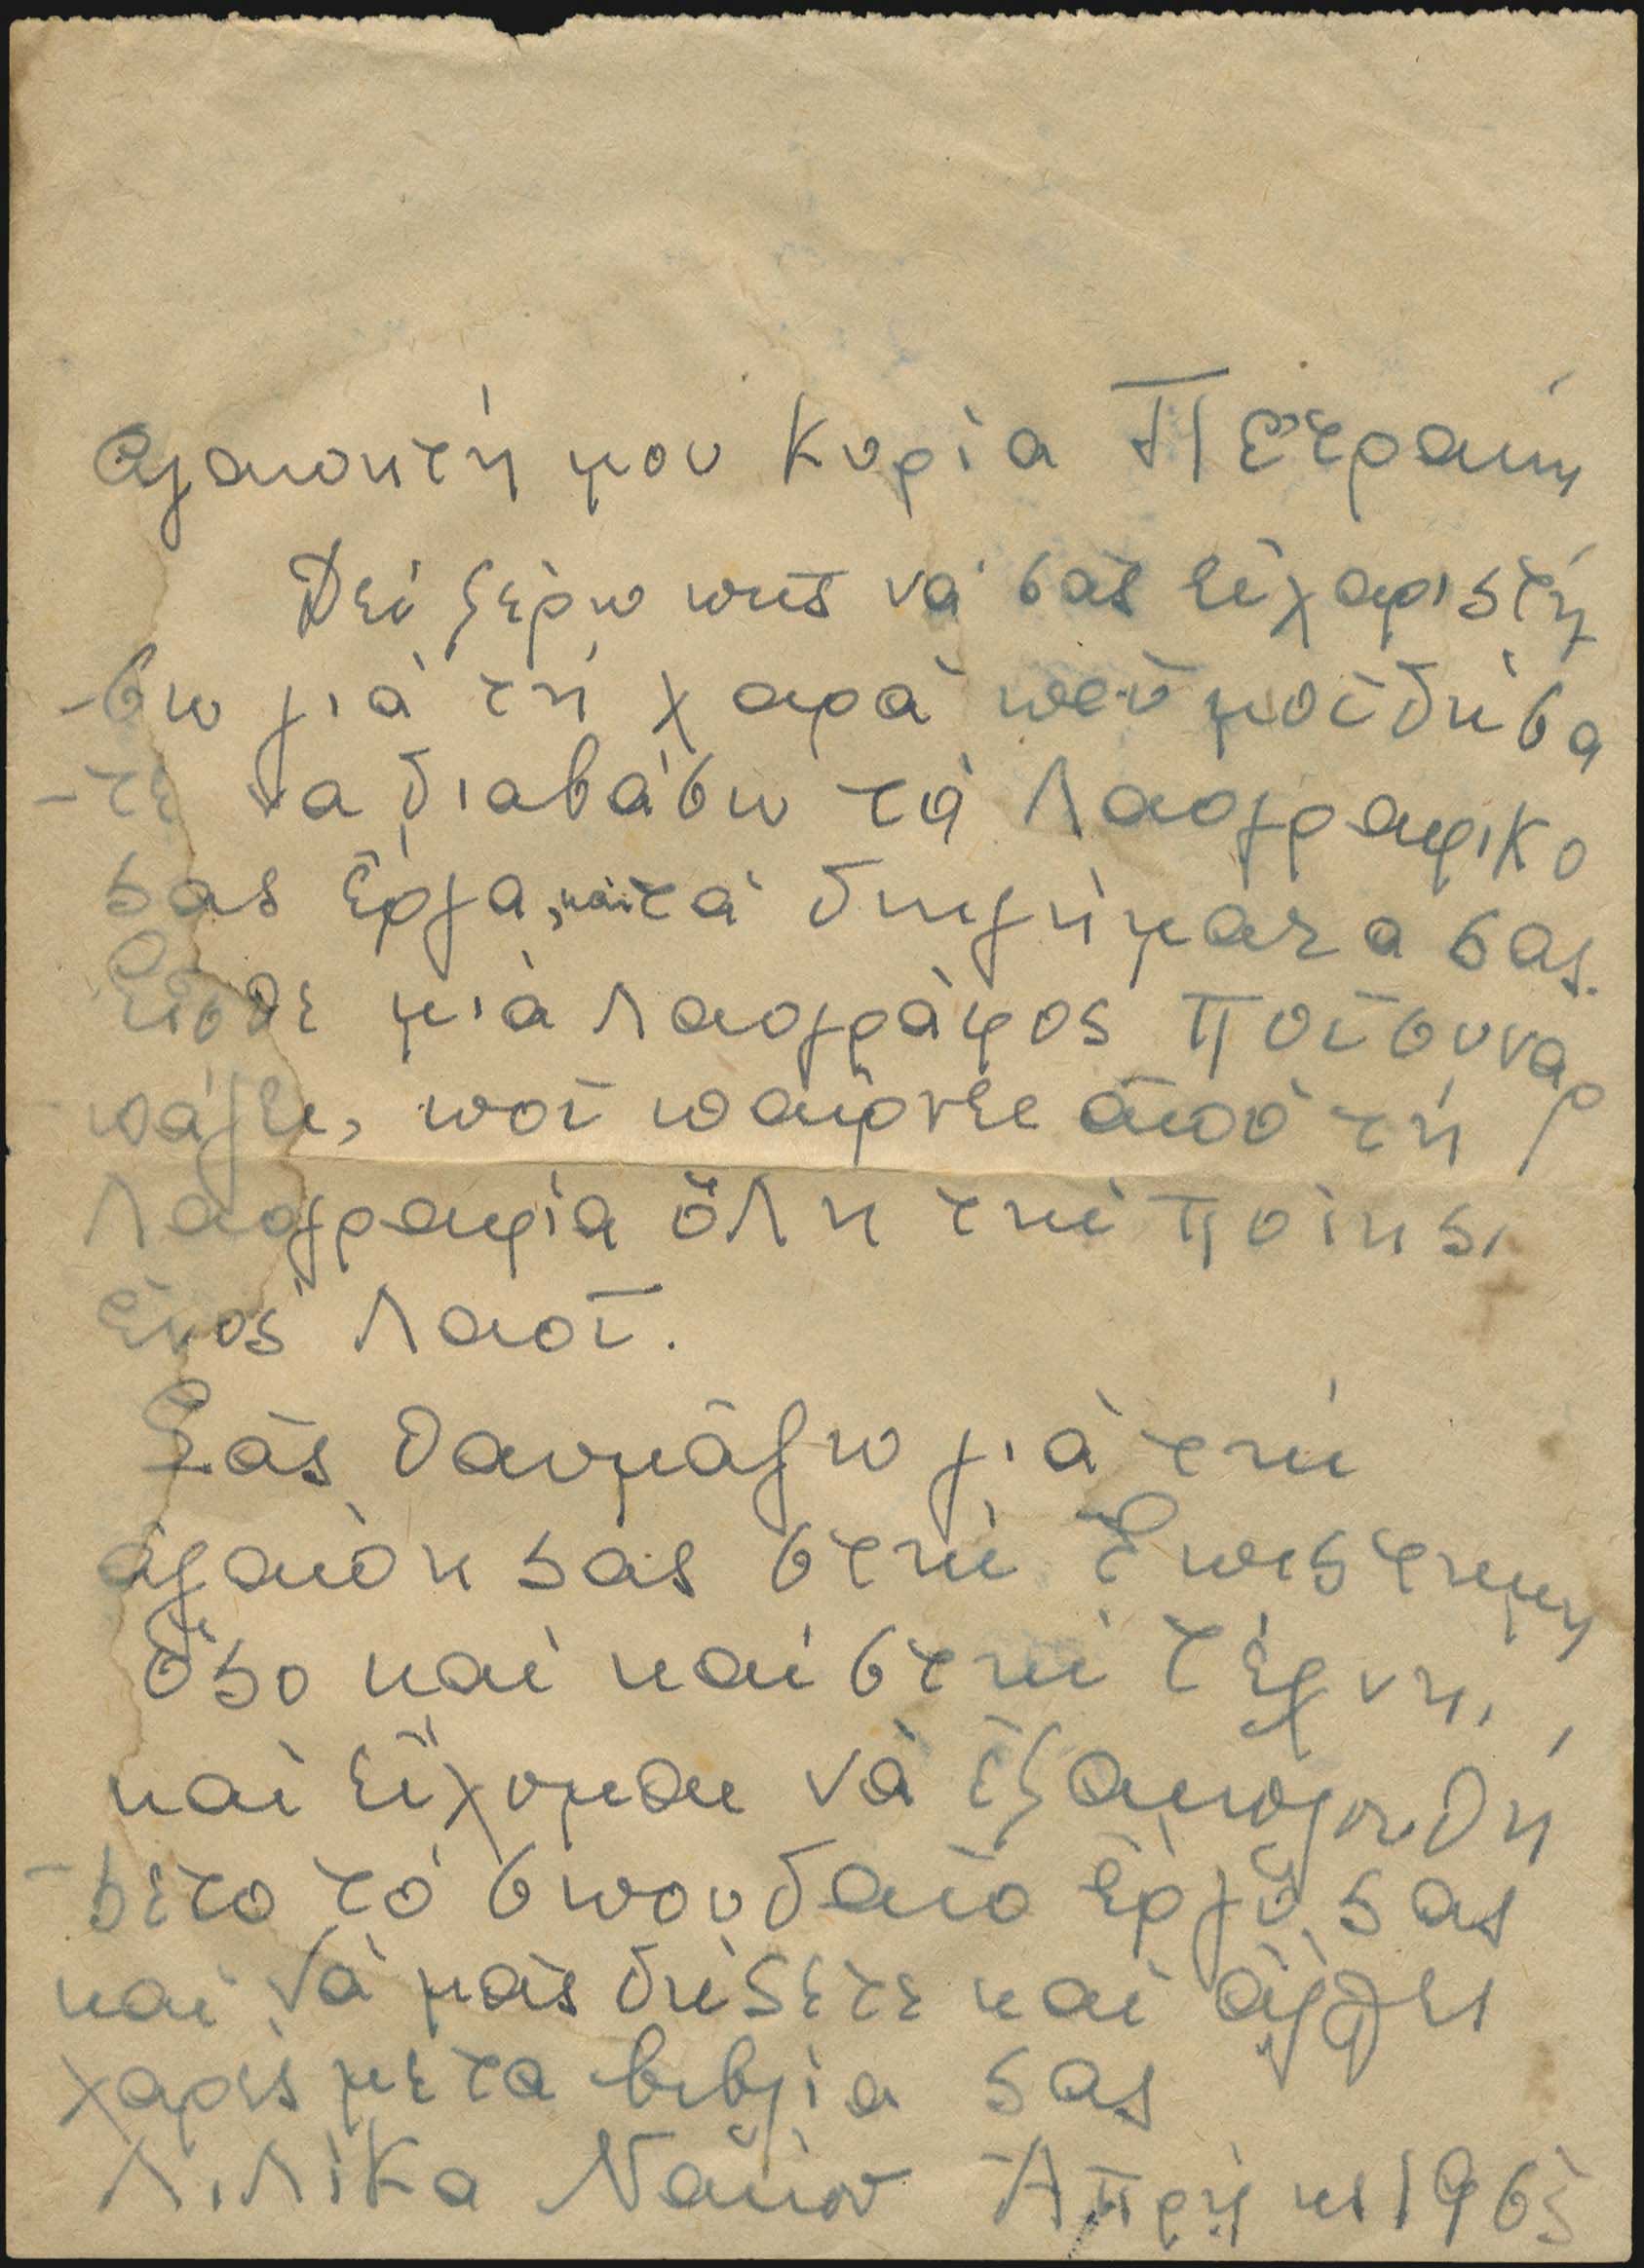 Αγαπητή μου Κυρία Πετράκη
Δέν ξέρω πώς νά σάς εύχαριστή
-σω γιά τή χαρά πού μού δώσα
-τε να διαβάσω τά Λαογραφικα
σας έργα, καί τά διηγήματα σας.
Είσθε μιά Λαογράφος πού συναρ
πάζει, πού παίρνει άπό τή
Λαογραφία όλη τήν ποίησι
ένός Λαού.
Σάς θαυμάζω γιά τήν
άγάπη σας στήν Επιστημη
όσο καί καί στήν τέχνη,
καί εύχομαι νά έξακολουθή
-σετε τό σπουδαίο έργο σας
καί νά μάς δώσετε καί άλλες
χαρές με τα βιβλία σας
Λιλίκα Νάκου Απρίλης 1965